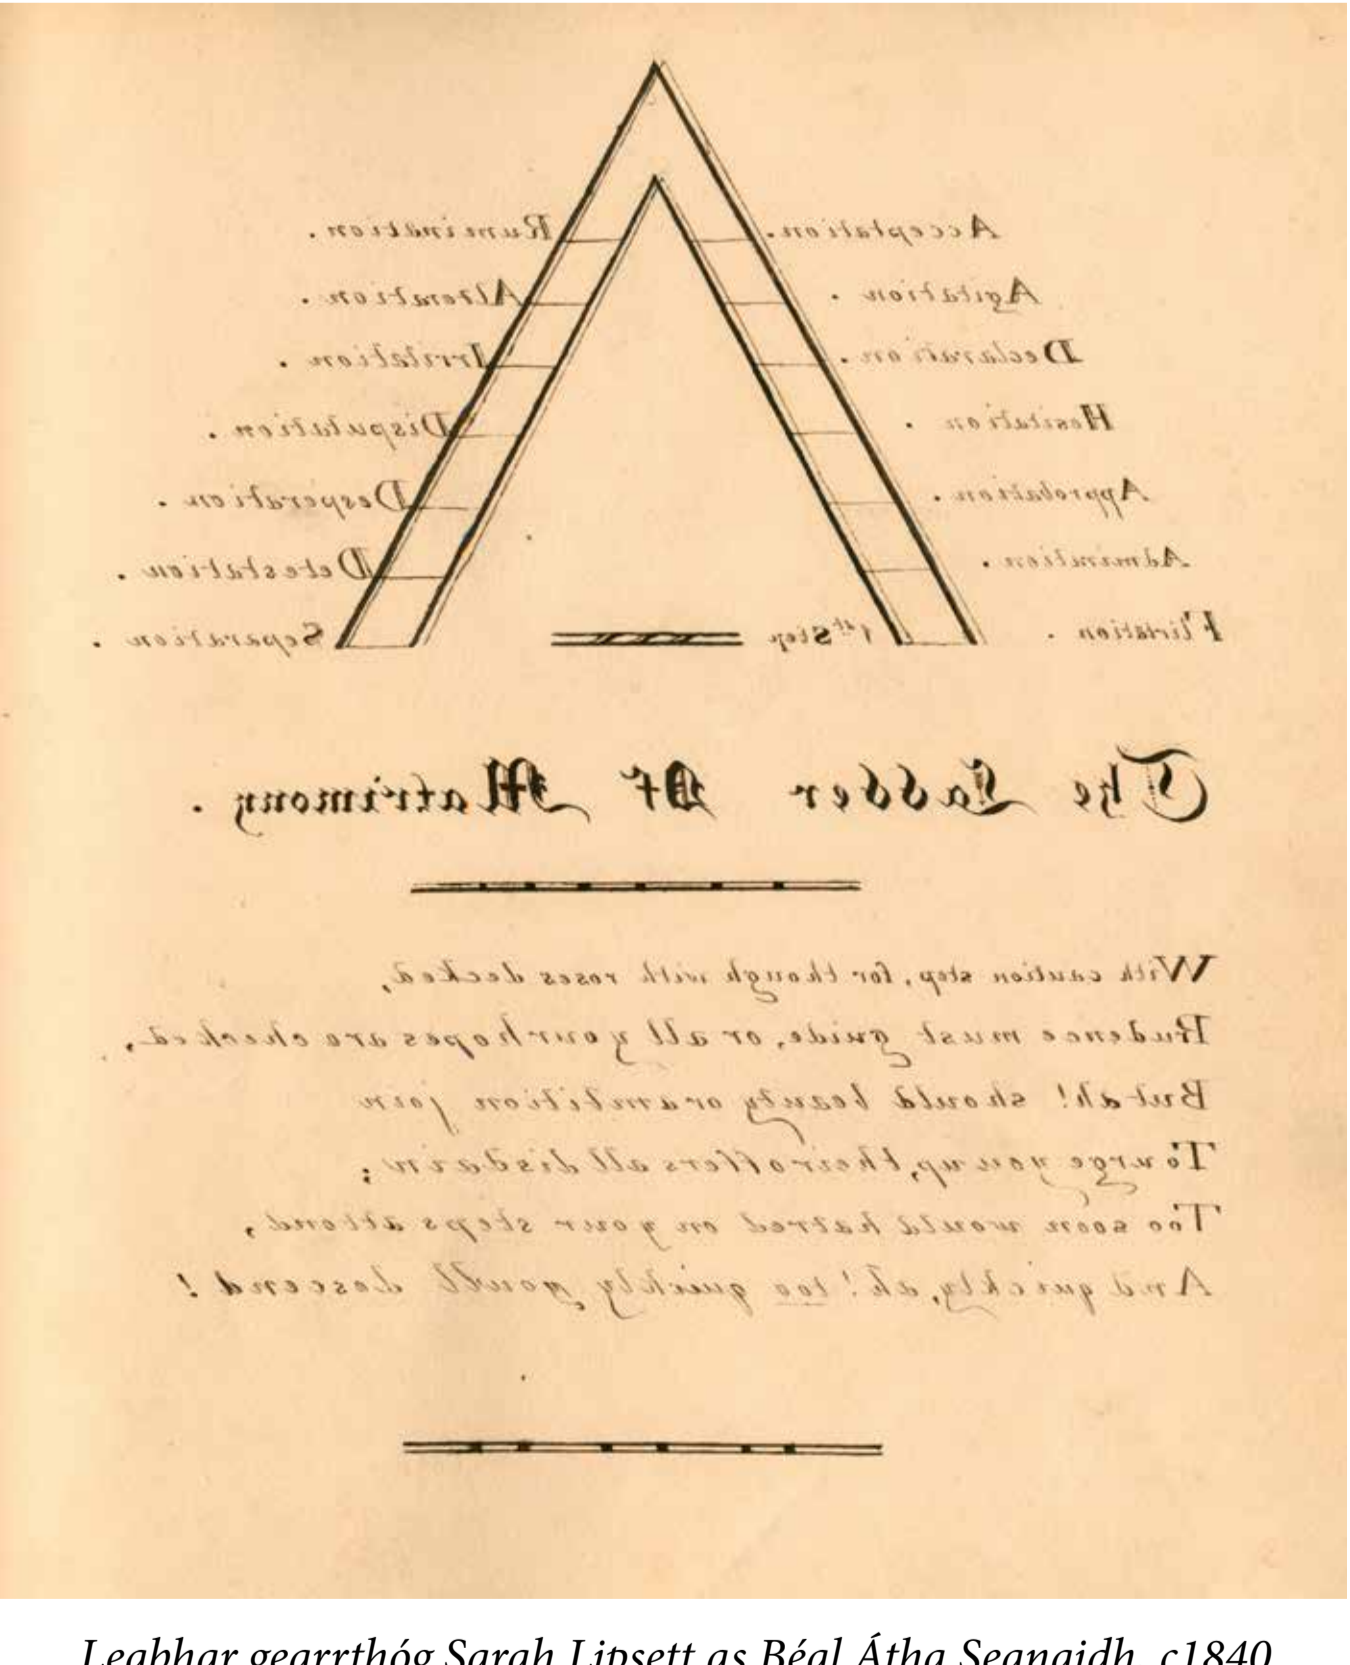 Acceptation.
Rumination.
Agitation.
Alteration.
Declaration.
Irritation.
Hesitation.
Disputation.
Approbation.
Desperation.
Admiration.
Detestation.
Flirtation.
1st Step
Separation.
The Ladder Of Matrimony.
With caution step, for though with roses decked,
Prudence must guide, or all your hopes are checked,
But ah! should beauty or ambition join
To urge you up, their offers all disdain;
Too soon would hatred on your steps attend,
And quickly, ah! too quickly you'll descend!
Leabhar gearrthóg Sarah Lipsett as Béal Átha Seanaidh, c1840